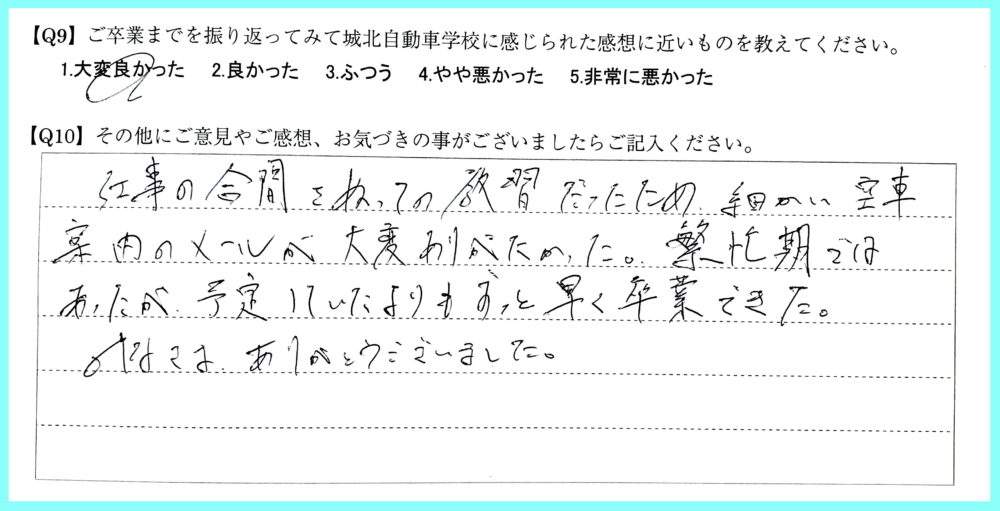 【Q9】ご卒業までを振り返ってみて城北自動車学校に感じられた感想に近いものを教えてください。
1.大変良かった 2.良かった 3.ふつう 4.やや悪かった 5.非常に悪かった
【Q10】その他にご意見やご感想、お気づきの事がございましたらご記入ください。
仕事の合間をぬっての教習だったため、細かい空車
案内のメールが大変ありがたかった。繁忙期では
あったが、予定していたよりもずっと早く卒業できた。
みなさま、ありがとうございました。